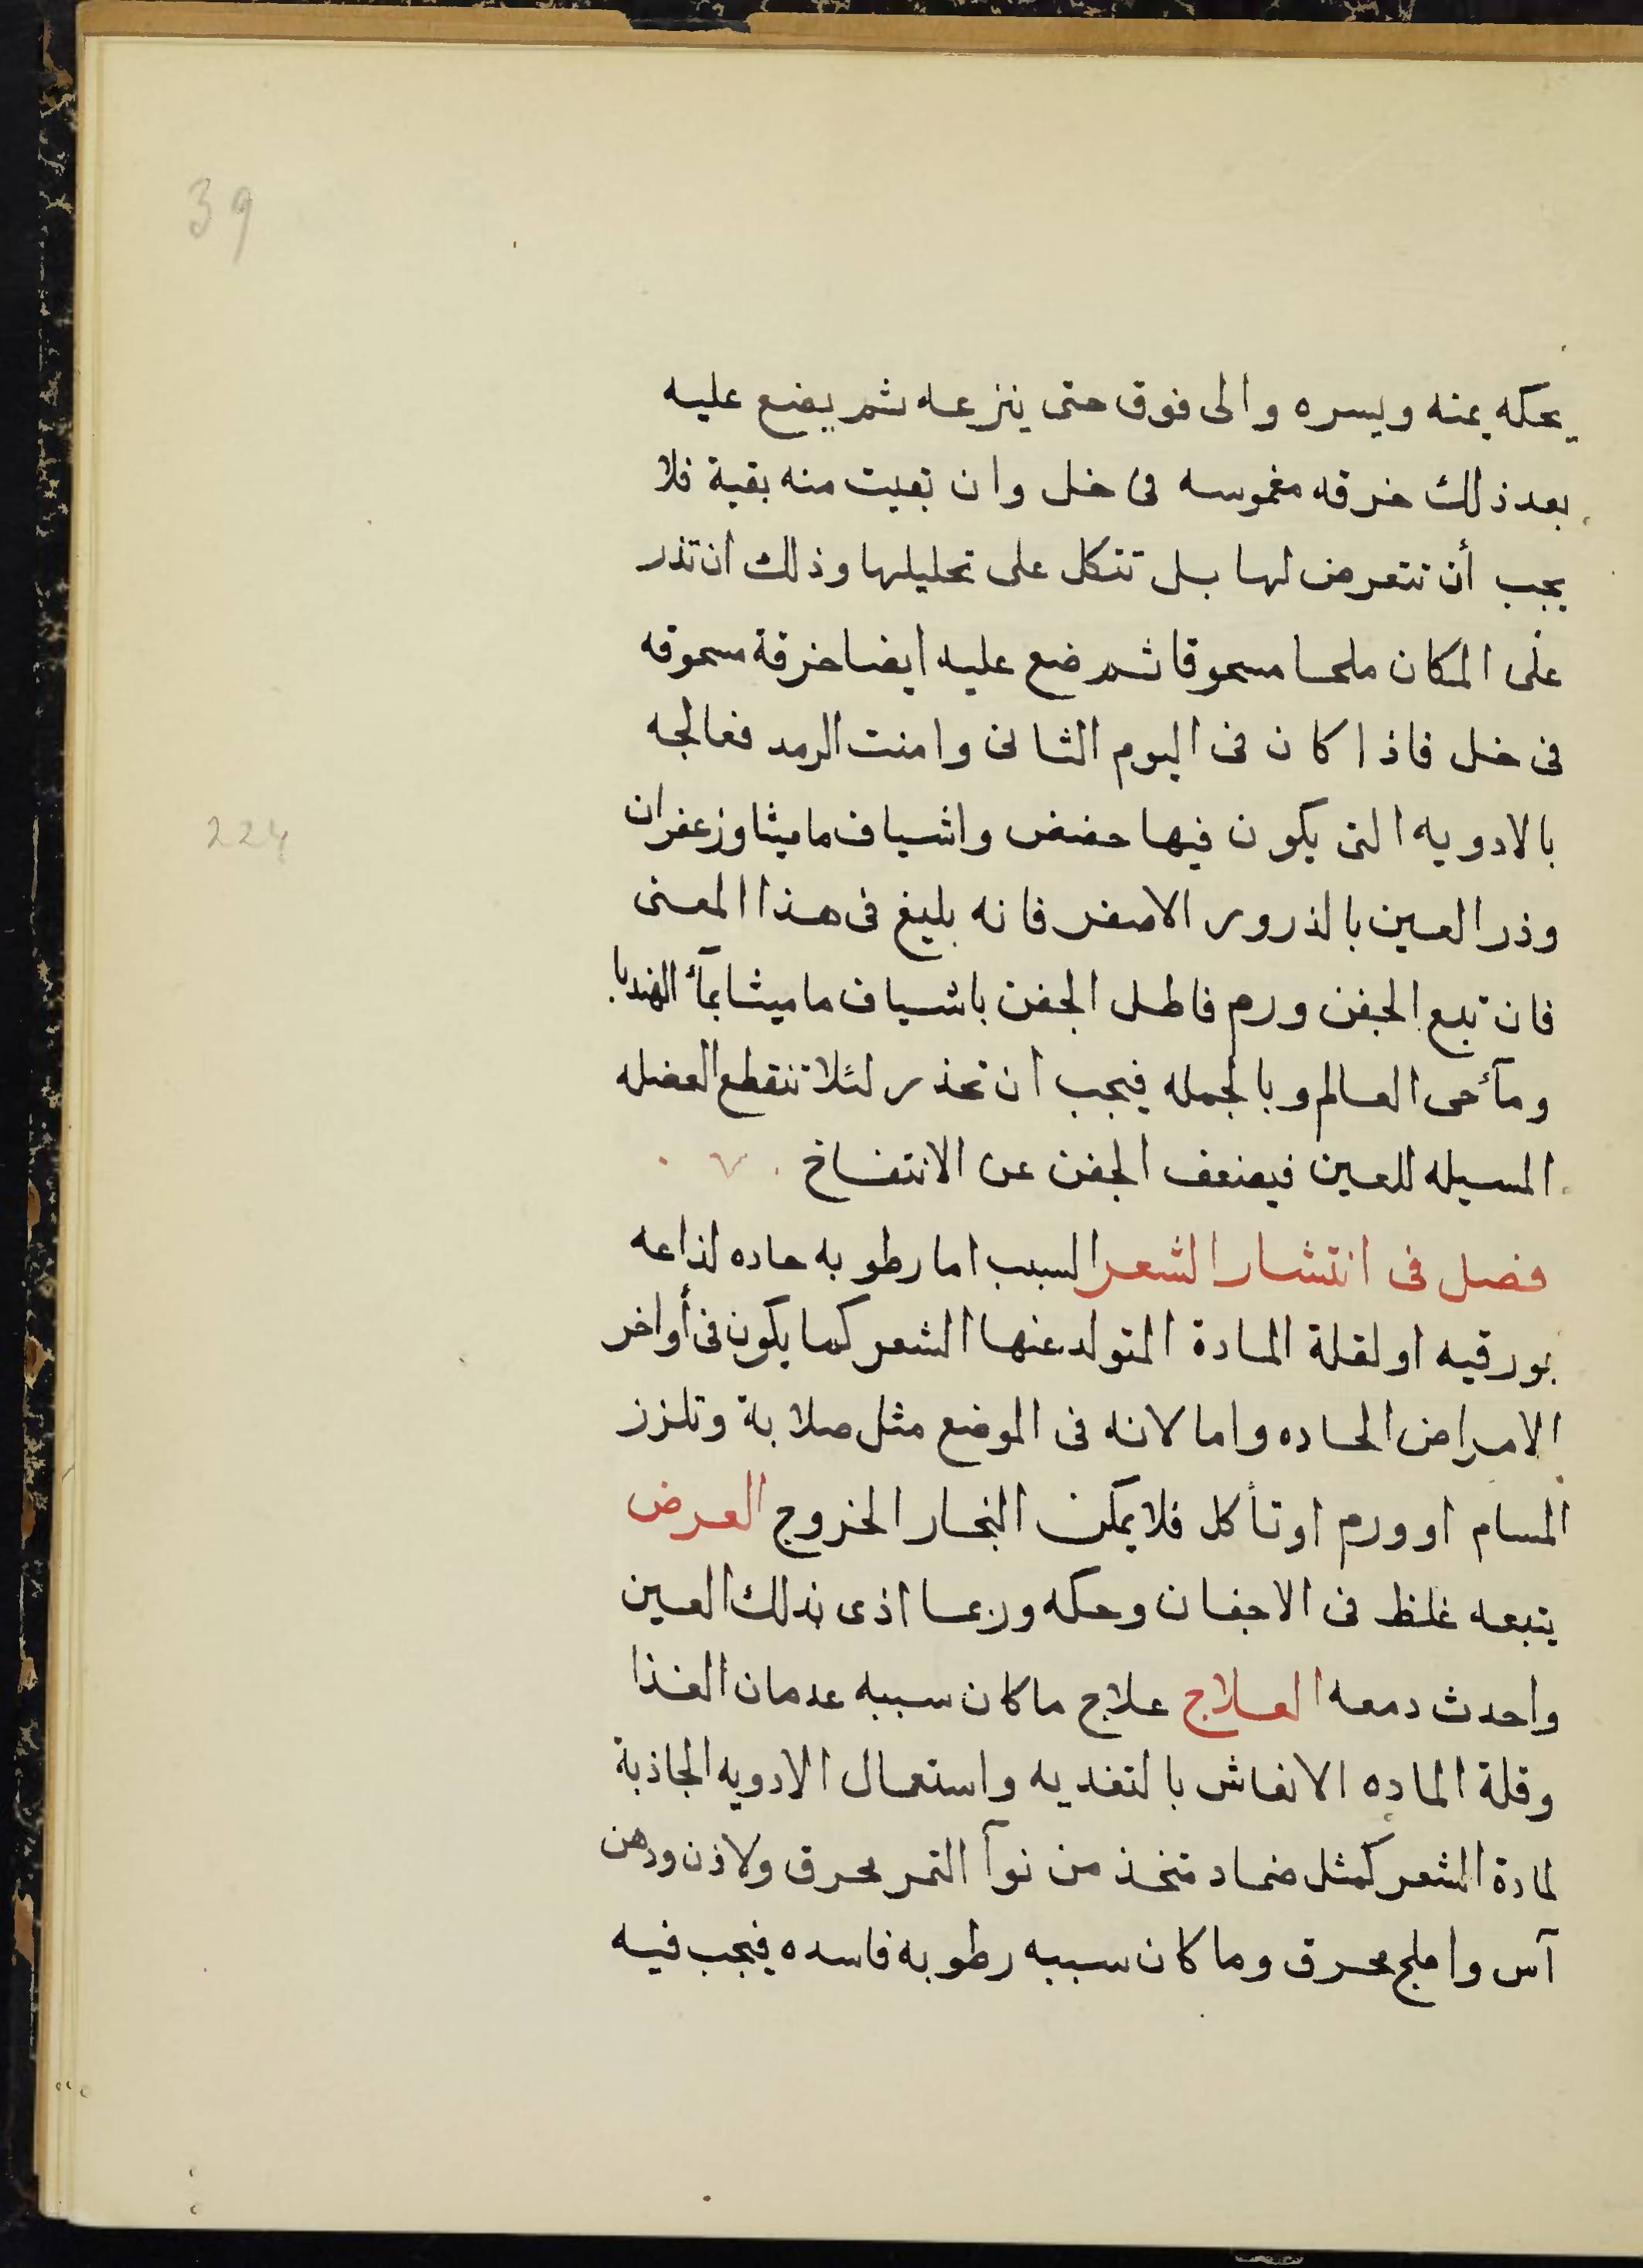 39
يحكه يمنه ويسره والى فوق حتى ينزعه ثم يضع عليه
بعد ذلك خرقه مغموسه فى خل وان بقيت منه بقية فلا
يجب أن تتعرض لها بل تتكل على تحليلها وذلك ان تذر
على المكان ملحا مسحوقا ثم ضع عليه ايضا خرقة مسحوقه
فى خل فاذا كان فى اليوم الثانى وامنت الرمد فعالجه
بالادويه التى يكون فيها حضض واشياف ماميثا وزعفران
224
وذر العين بالذرور الاصفر فانه بليغ فى هذا المعنى
فان تبع الجفن ورم فاطل الجفن باشياف ماميثا بمآء الهندبا
ومآء حى العالم وبالجمله فيجب ان تحذر لئلا تنقطع العضله
المسيله للعين فيضعف الجفن عن الانتفاخ
فصل فى انتشار الشعر السبب اما رطوبه حاده لذاعه
بورقيه او لقلة المادة المتولد عنها الشعر كما يكون فى أواخر
الامراض الحاده واما لانه فى الموضع مثل صلابة وتلزز
المسام او ورم او تأكل فلا يمكن البخار الخروج العرض
يتبعه غلظ فى الاجفان وحكه وربما اذى بذلك العين
واحدث دمعه العلاج علاج ما كان سببه عدمان الغذا
وقلة الماده الانعاش بالتغديه واستعمال الادويه الجاذبة
لمادة الشعر كمثل ضماد متخذ من نوآ التمر محرق ولاذن ودهن
آس واملج محرق وما كان سببه رطوبه فاسده فيجب فيه